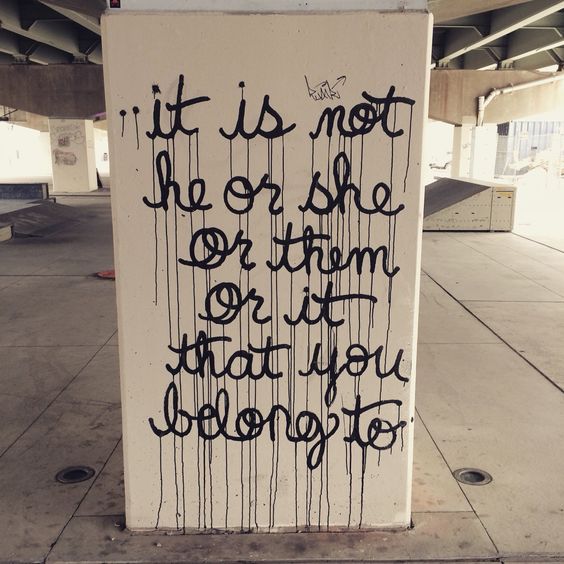 it is not
he or she
or them
or it
that you
belong to